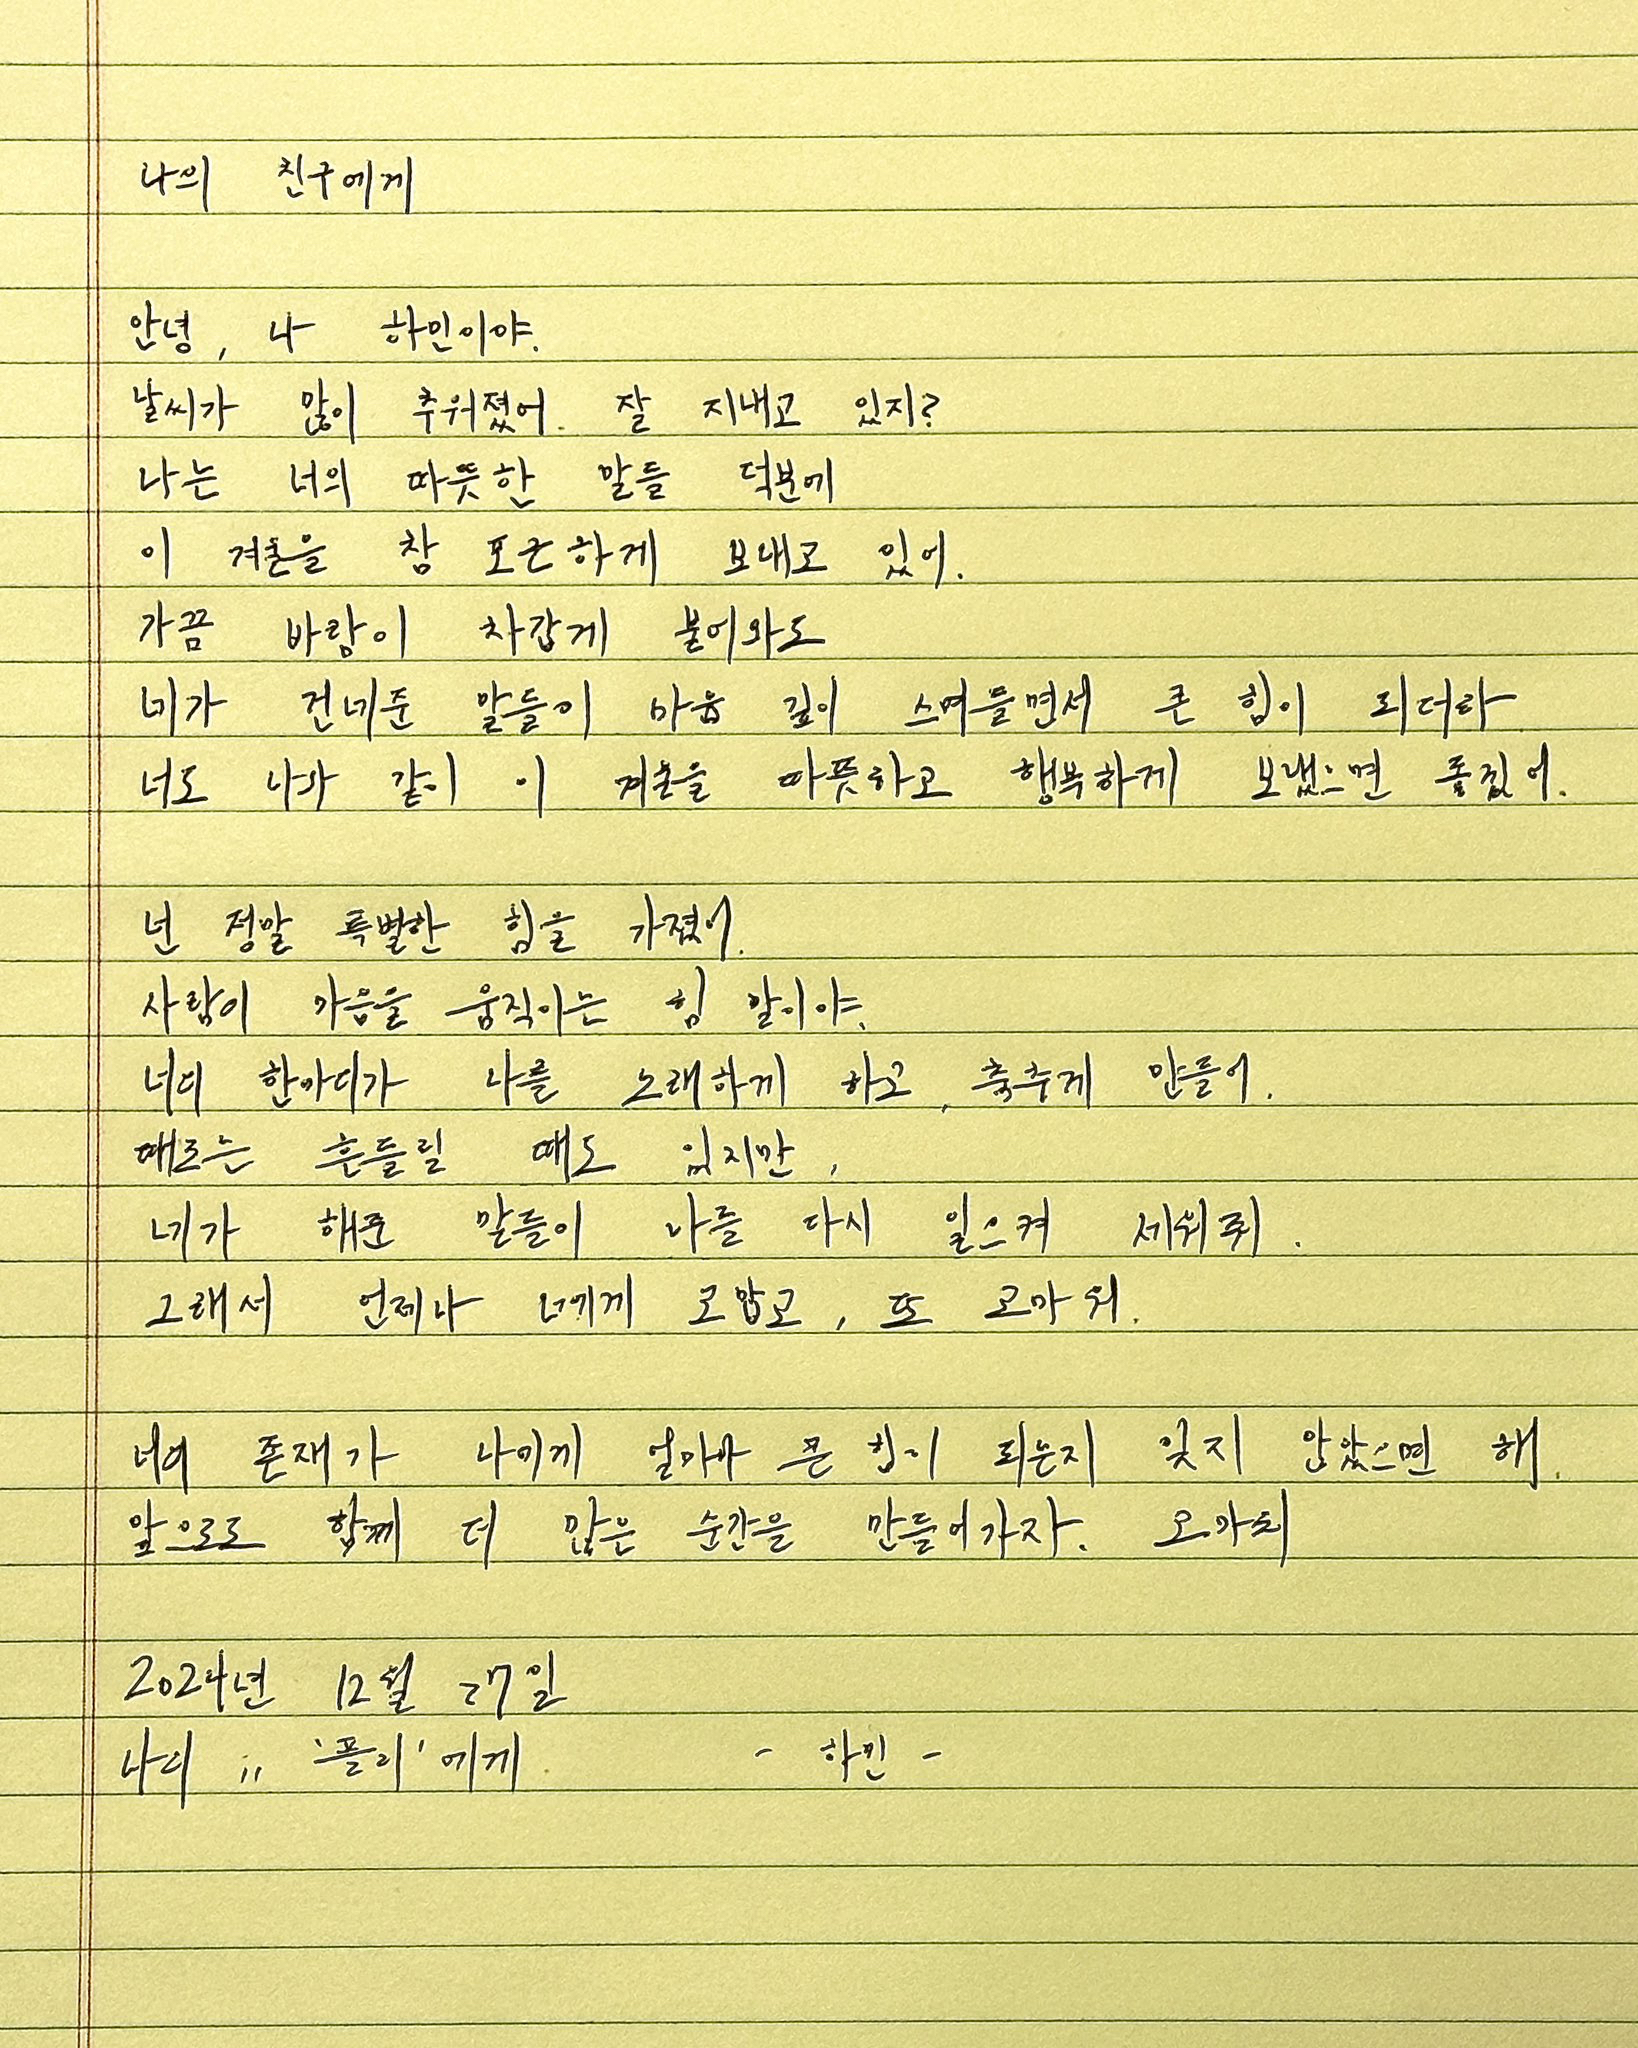 나의 친구에게
안녕, 나 하민이야.
날씨가 많이 추워졌어. 잘 지내고 있지?
나는 너의 따뜻한 말들 덕분에
이 겨울을 참 포근하게 보내고 있어.
가끔 바람이 차갑게 불어와도
네가 건네준 말들이 마음 깊이 스며들면서 큰 힘이 되더라
너도 나와 같이 이 겨울을 따뜻하고 행복하게 보냈으면 좋겠어.
넌 정말 특별한 힘을 가졌어.
사람이 마음을 움직이는 힘 말이야.
너의 한마디가 나를 노래하게 하고, 춤추게 만들어.
때로는 흔들릴 때도 있지만,
네가 해준 말들이 나를 다시 일으켜 세워줘.
그래서 언제나 너에게 고맙고, 또 고마워.
너의 존재가 나에게 얼마나 큰 힘이 되는지 잊지 않았으면 해.
앞으로도 함께 더 많은 순간을 만들어가자. 고마워
2024년 12월 27일
나의 ,, '플리'에게 - 하민 -